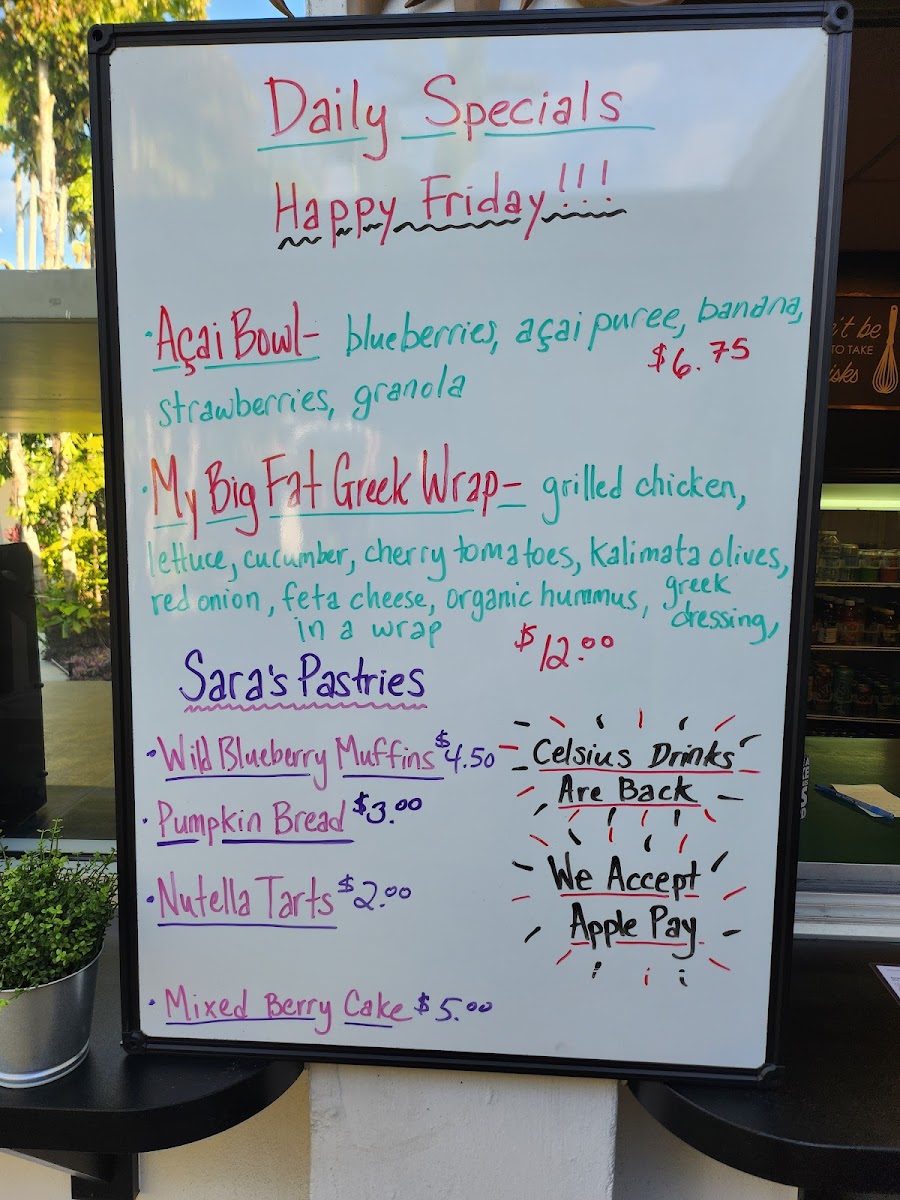 Daily Specials
Happy Friday!!!
·Açai Bowl- blueberries, açai puree, banana,
$6.75
strawberries, granola
·My Big Fat Greek Wrap- grilled chicken,
lettuce, cucumber, cherry tomatoes, Kalimata olives,
red onion, feta cheese, organic hummus, greek
dressing,
in a wrap
$12.00
Sara's Pastries
·Wild Blueberry Muffins $4.50
·Pumpkin Bread $3.00
·Nutella Tarts $2.00
·Mixed Berry Cake $5.00
Celsius Drinks
Are Back
We Accept
Apple Pay
't be
TO TAKE
isks